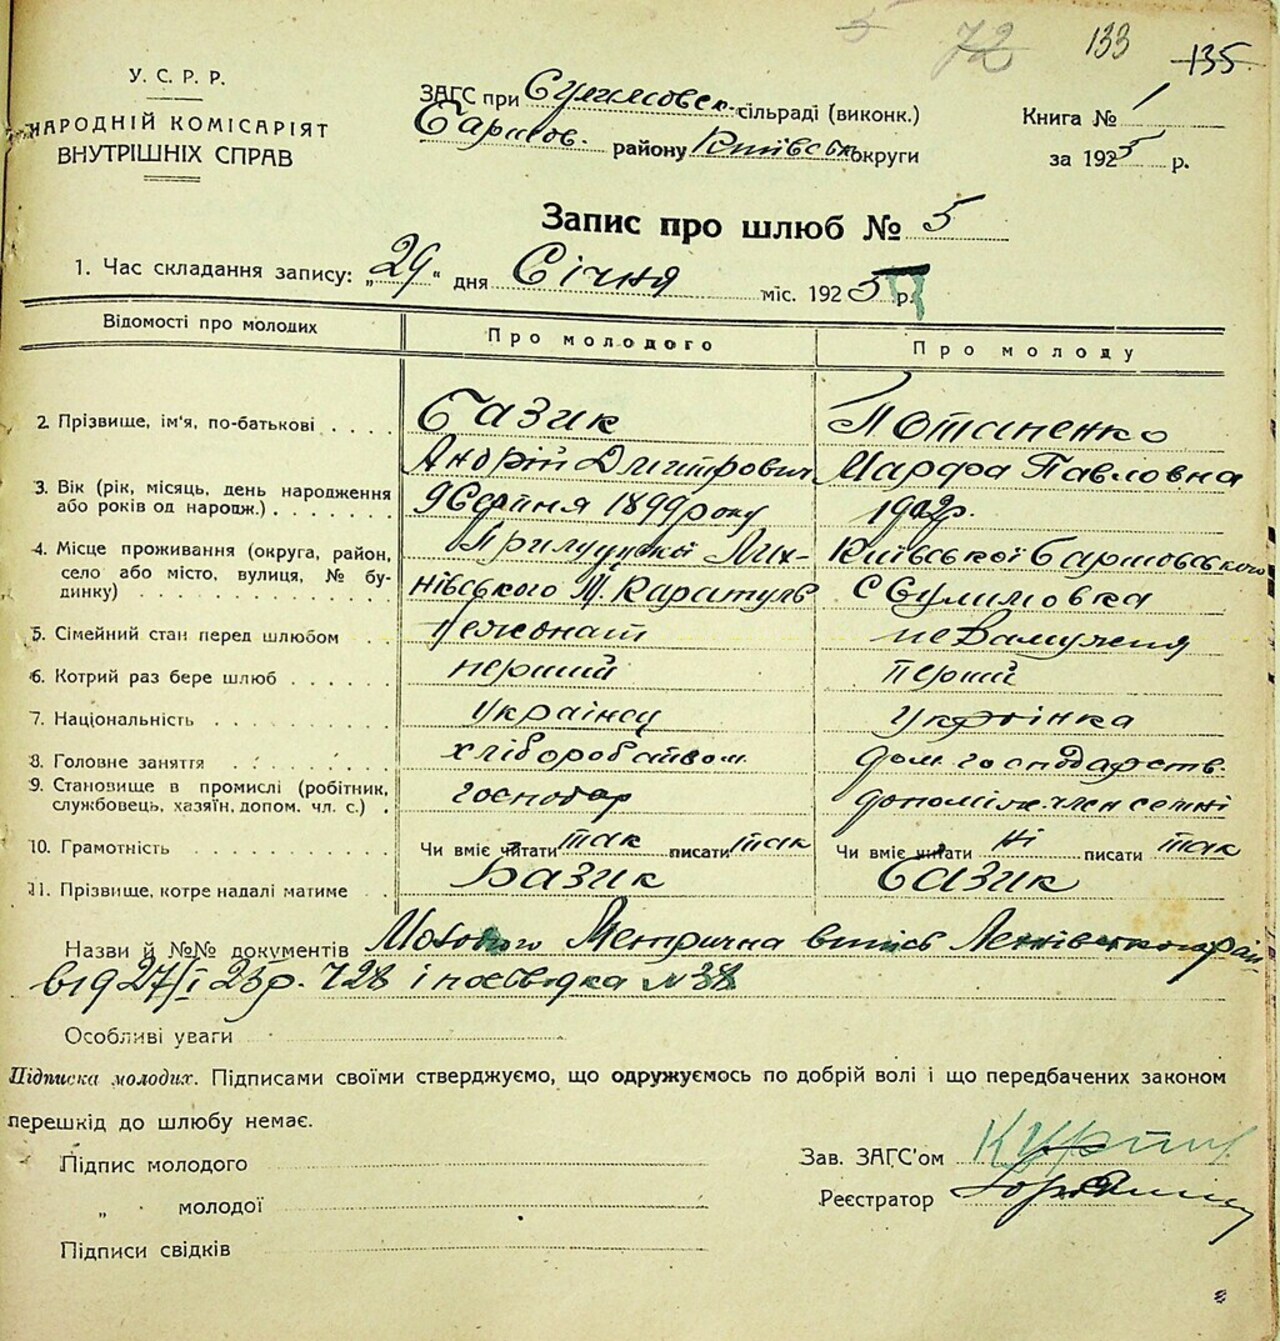 5 72 133 135
У. С. Р. Р.
НАРОДНІЙ КОМІСАРІЯТ
ВНУТРІШНІХ СПРАВ
ЗАГС при Сулимовск. сільраді (виконк.)
Баришов. району Київськ округи
Книга № 1
за 1925 р.
Запис про шлюб № 5
1. Час складання запису: „29“ дня Січня міс. 1925 р.
Відомості про молодих Про молодого Про молоду
2. Прізвище, ім'я, по-батькові . . . . Базик Потапенко
Андрій Дмитрович Марфа Павловна
3. Вік (рік, місяць, день народження або років од народж.) . . . . . . . 9 Серпня 1899 року 1902р.
4. Місце проживання (округа, район, село або місто, вулиця, № будинку) . . . . . . . . . Прилуцької Київської Баришовського
нівського М. Каратуль с Сулимовка
5. Сімейний стан перед шлюбом . . нежонат незамужня
6. Котрий раз бере шлюб . . . . . перший перший
7. Національність . . . . . . . . українец українка
8. Головне заняття . . . . . . . хліборобством дом. господарств.
9. Становище в промислі (робітник, службовець, хазяїн, допом. чл. с.) . господар допоміжн. член семні
10. Грамотність . . . . . . . . . . Чи вміє читати так писати так Чи вміє читати ні писати так
11. Прізвище, котре надалі матиме . . Базик Базик
Назви й №№ документів Молодого Метрична випись
від 27/I 25р. 728 і посвідка № 38
Особливі уваги
Підписка молодих. Підписами своїми стверджуємо, що одружуємось по добрій волі і що передбачених законом
перешкід до шлюбу немає.
Підпис молодого
„ молодої
Підписи свідків
Зав. ЗАГС'ом
Реєстратор